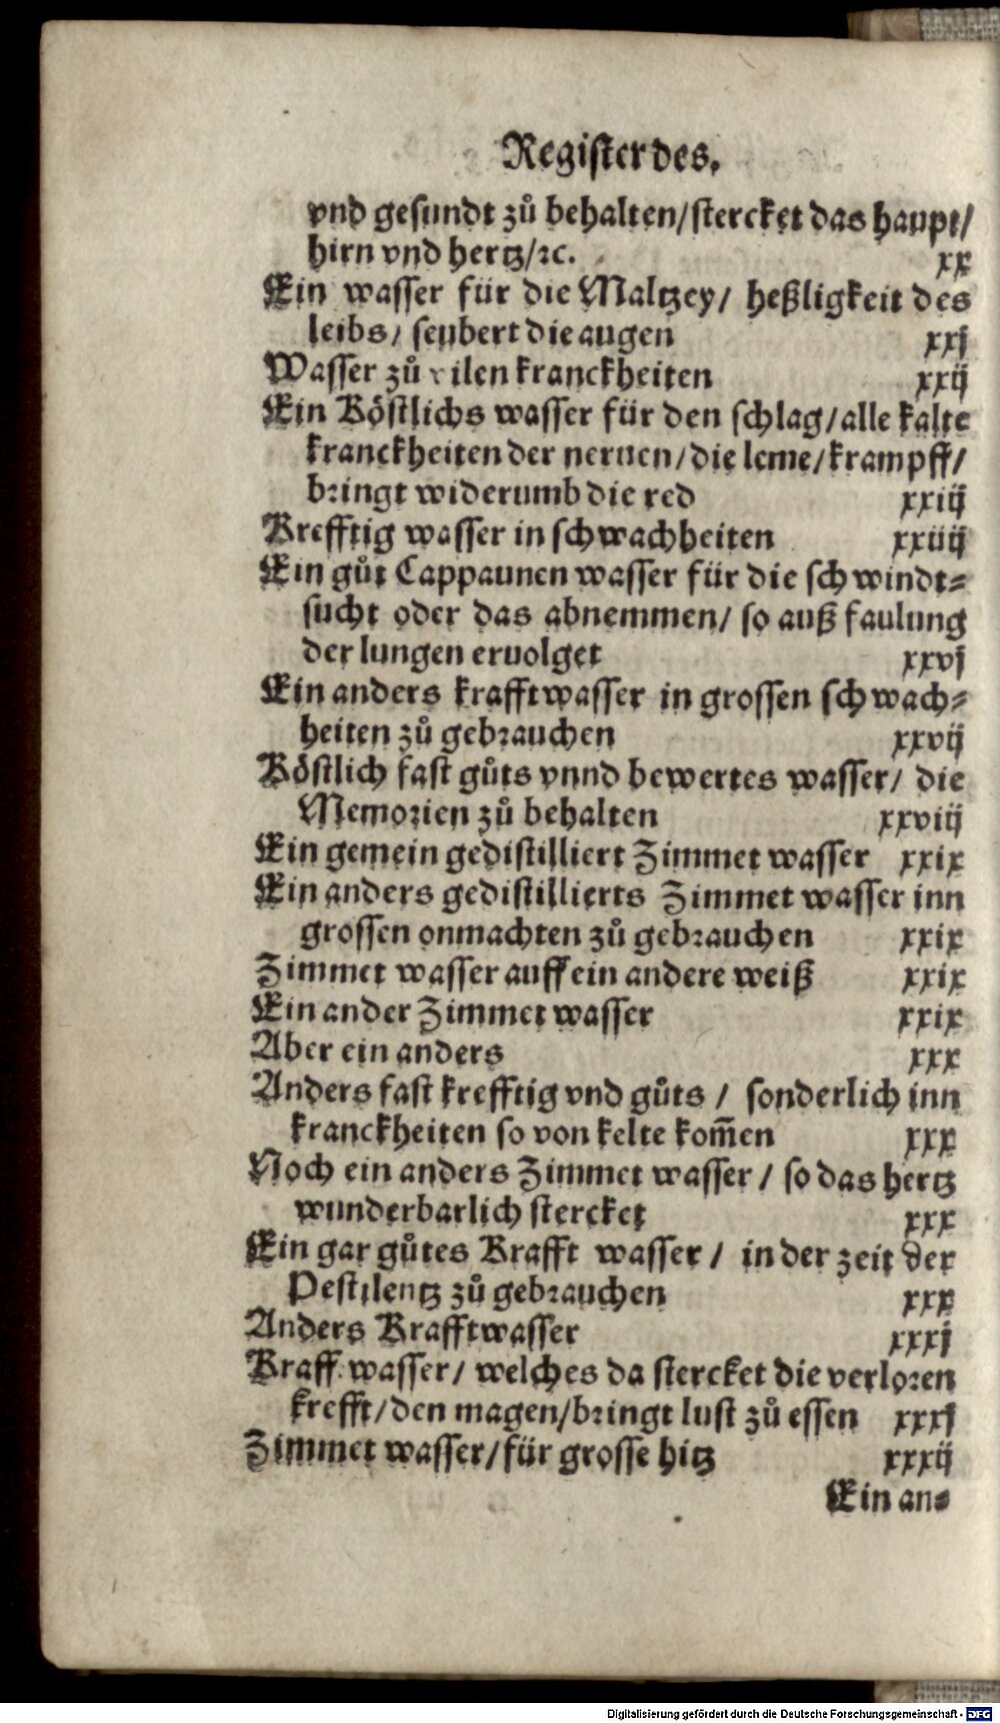 Register des.
vnd gesundt zů behalten/stercket das haupt/
hirn vnd hertz/ꝛc. xx
Ein wasser für die Maltzey/ heßligkeit des
leibs/ seubert die augen xxj
Wasser zů vilen kranckheiten xxij
Ein Köstlichs wasser für den schlag/alle kalte
kranckheiten der neruen/die leme/krampff/
bringt widerumb die red xxiij
Krefftig wasser in schwachheiten xxiiij
Ein gůt Cappaunen wasser für die schwindt⸗
sucht oder das abnemmen/ so auß faulung
der lungen eruolget xxvj
Ein anders krafftwasser in grossen schwach⸗
heiten zů gebrauchen xxvij
Köstlich fast gůts vnnd bewertes wasser/ die
Memorien zů behalten xxviij
Ein gemein gedistilliert Zimmet wasser xxix
Ein anders gedistillierts Zimmet wasser inn
grossen onmachten zů gebrauchen xxix
Zimmet wasser auff ein andere weiß xxix
Ein ander Zimmet wasser xxix
Aber ein anders xxx
Anders fast krefftig vnd gůts / sonderlich inn
kranckheiten so von kelte kom̃en xxx
Noch ein anders Zimmet wasser / so das hertz
wunderbarlich stercket xxx
Ein gar gůtes Krafft wasser / in der zeit der
Pestilentz zů gebrauchen xxx
Anders Krafftwasser xxxj
Krafft wasser/ welches da stercket die verloren
krefft/den magen/bringt lust zů essen xxxj
Zimmet wasser/für grosse hitz xxxij
Ein an⸗
Digitalisierung gefördert durch die Deutsche Forschungsgemeinschaft - DFG